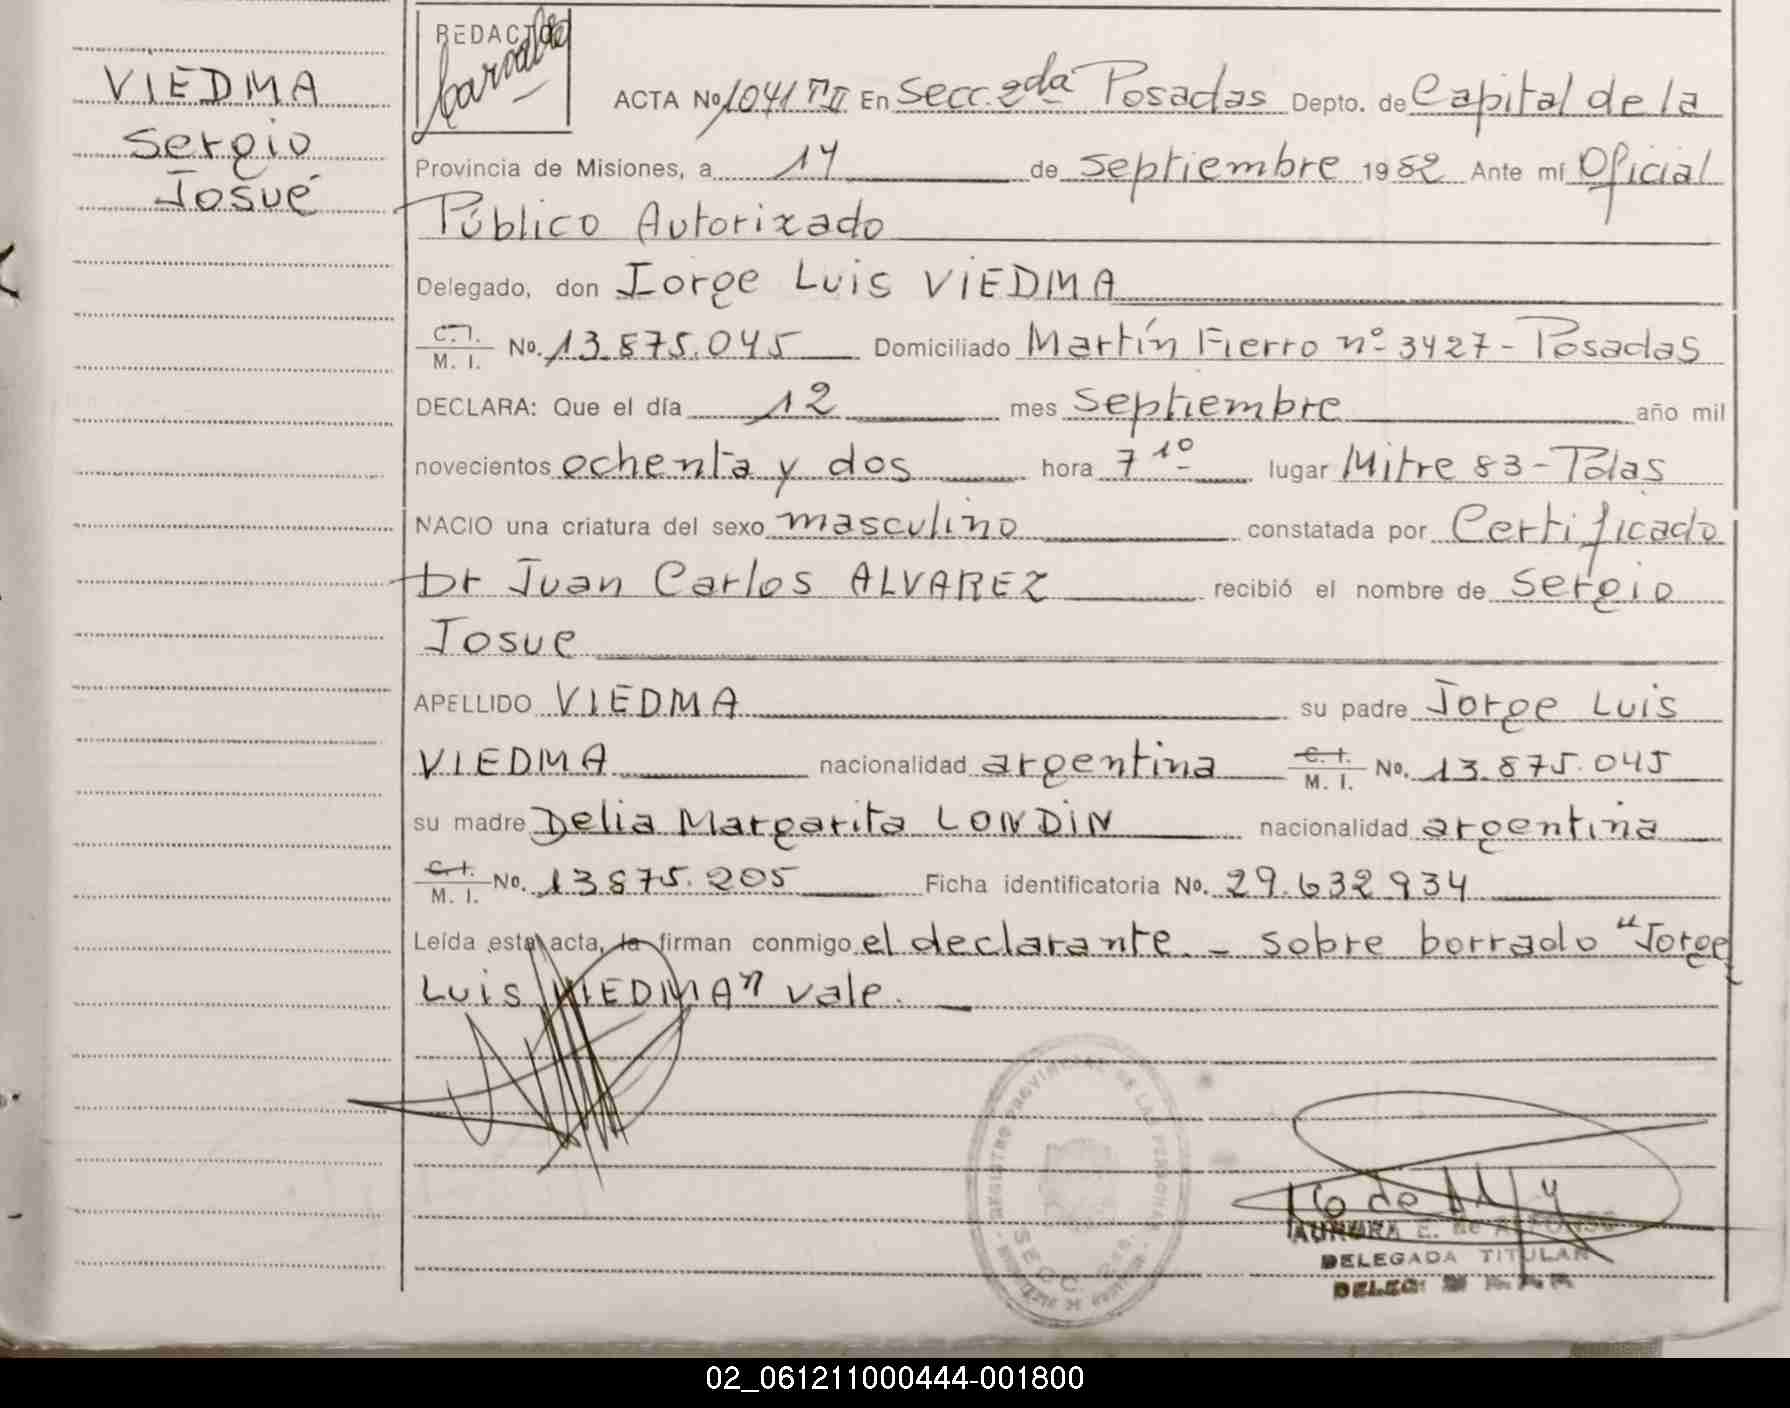 VIEDMA
Sergio
Josué
REDACTO
ACTA No 1041 TºII En Secc. 2da Posadas Depto. de Capital de la
Provincia de Misiones, a 14 de septiembre 1982 Ante mí Oficial
Público Autorizado
Delegado, don Jorge Luis VIEDMA
C.I.
M. I. No. 13.875.045 Domiciliado Martín Fierro nº 3427 - Posadas
DECLARA: Que el día 12 mes septiembre año mil
novecientos ochenta y dos hora 7 10 lugar Mitre 83 - Pdas
NACIO una criatura del sexo masculino constatada por Certificado
Dr Juan Carlos ALVAREZ recibió el nombre de Sergio
Josue
APELLIDO VIEDMA su padre Jorge Luis
VIEDMA nacionalidad argentina C. I. M. I. No. 13.875.045
su madre Delia Margarita LONDIN nacionalidad argentina
C. I. M. I. No. 13875.205 Ficha identificatoria No. 29.632934
Leída esta acta, la firman conmigo el declarante. - sobre borrado "Jorge
Luis VIEDMA" vale.
REGISTRO PROVINCIAL DE LAS PERSONAS
SECC. 2da.
AURORA E. de
DELEGADA TITULAR
02_061211000444-001800